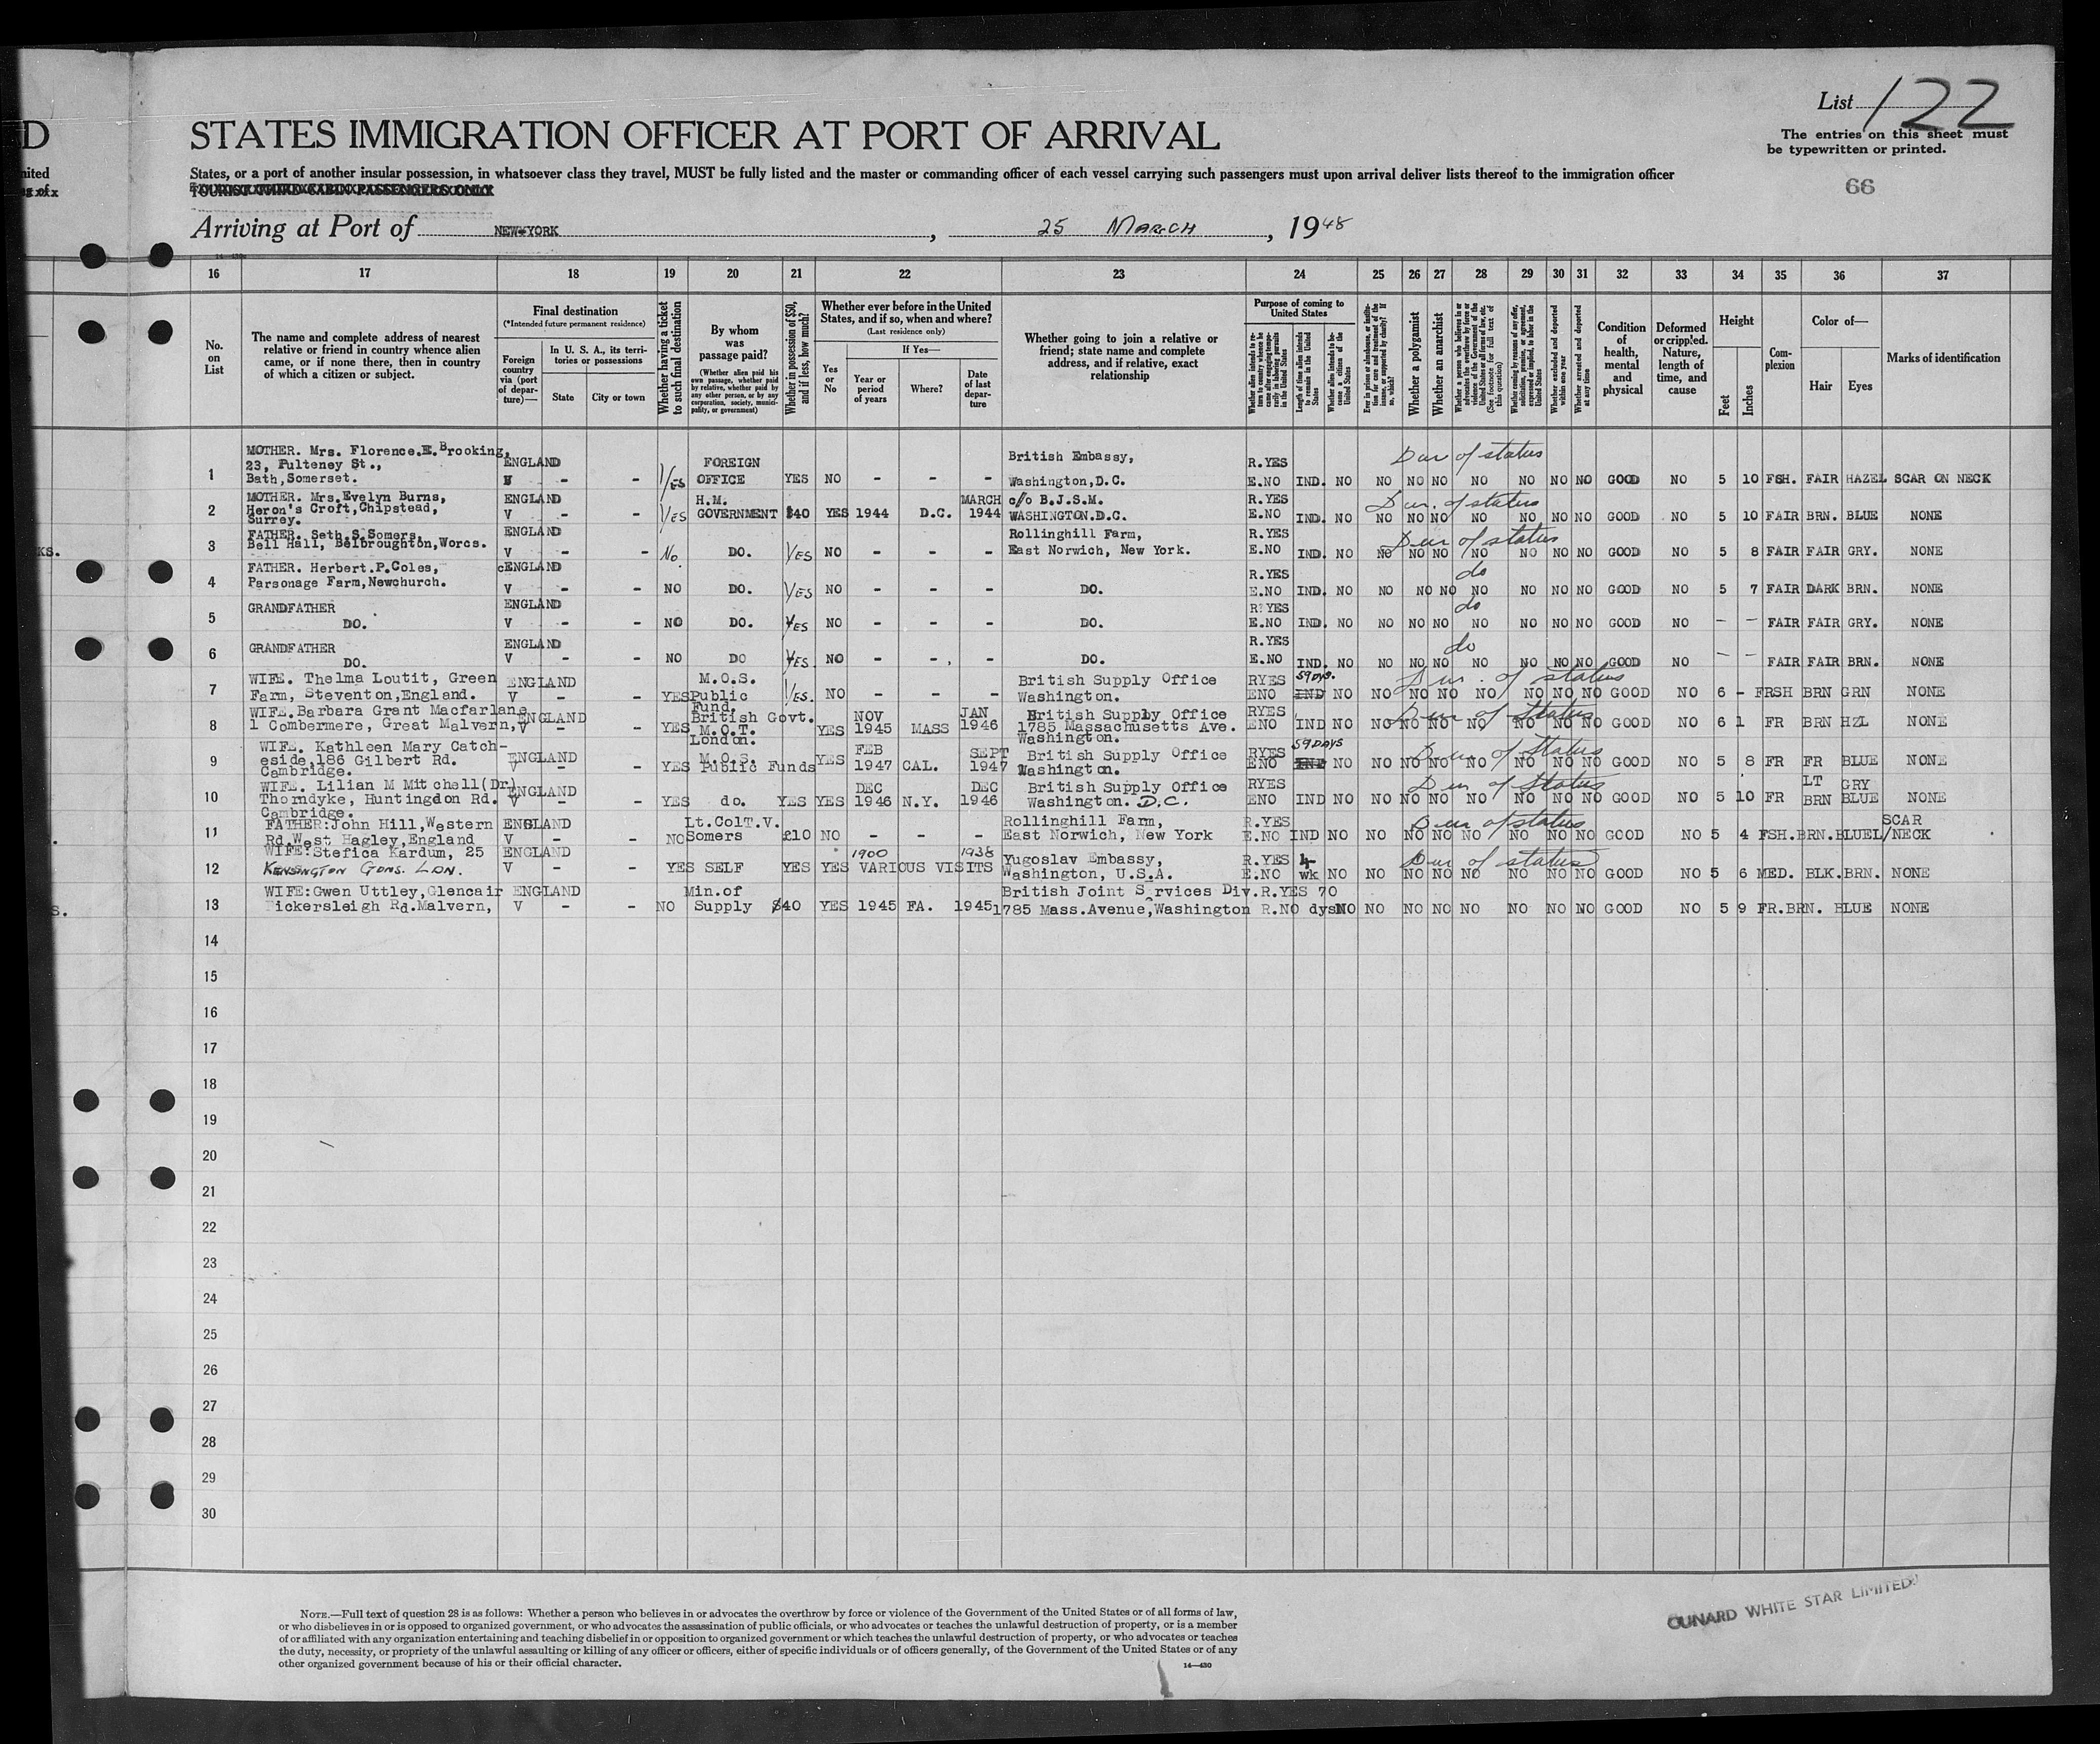 List 122
The entries on this sheet must
be typewritten or printed.
66
D
STATES IMMIGRATION OFFICER AT PORT OF ARRIVAL
States, or a port of another insular possession, in whatsoever class they travel, MUST be fully listed and the master or commanding officer of each vessel carrying such passengers must upon arrival deliver lists thereof to the immigration officer
TOURIST THIRD CABIN PASSENGERS ONLY
Arriving at Port of NEW-YORK, 25 MARCH, 1948
16 17 18 19 20 21 22 23 24 25 26 27 28 29 30 31 32 33 34 35 36 37
No. on List
The name and complete address of nearest relative or friend in country whence alien came, or if none there, then in country of which a citizen or subject.
Final destination
(*Intended future permanent residence)
Foreign country via (port of departure)—
In U. S. A., its territories or possessions
State
City or town
Whether having a ticket to such final destination
By whom was passage paid?
(Whether alien paid his own passage, whether paid by relative, whether paid by any other person, or by any corporation, society, municipality, or government)
Whether in possession of $50, and if less, how much?
Whether ever before in the United States, and if so, when and where?
(Last residence only)
Yes or No
If Yes—
Year or period of years
Where?
Date of last departure
Whether going to join a relative or friend; state name and complete address, and if relative, exact relationship
Purpose of coming to United States
Length of time alien intends to remain in the United States
Whether alien intends to become a citizen of the United States
Whether a polygamist
Whether an anarchist
Whether excluded and deported within one year
Whether arrested and deported at any time
Condition of health, mental and physical
Deformed or crippled. Nature, length of time, and cause
Height
Feet
Inches
Complexion
Color of—
Hair
Eyes
Marks of identification
1 MOTHER. Mrs. Florence.E.Brooking, 23, Pulteney St., Bath,Somerset. ENGLAND V - - YES FOREIGN OFFICE YES NO - - - British Embassy, Washington,D.C. R.YES E.NO IND. NO Dur of status NO NO NO NO NO NO NO GOOD NO 5 10 FSH. FAIR HAZEL SCAR ON NECK
2 MOTHER. Mrs.Evelyn Burns, Heron's Croft,Chipstead, Surrey. ENGLAND V - - YES H.M. GOVERNMENT $40 YES 1944 D.C. MARCH 1944 c/o B.J.S.M. WASHINGTON.D.C. R.YES E.NO IND. NO Dur. of status NO NO NO NO NO NO NO GOOD NO 5 10 FAIR BRN. BLUE NONE
3 FATHER. Seth.S.Somers, Bell Hall, Belbroughton,Worcs. ENGLAND V - - No. DO. YES NO - - - Rollinghill Farm, East Norwich, New York. R.YES E.NO IND. NO Dur of status NO NO NO NO NO NO NO GOOD NO 5 8 FAIR FAIR GRY. NONE
4 FATHER. Herbert.P.Coles, Parsonage Farm,Newchurch. ENGLAND V - - NO DO. YES NO - - - DO. R.YES E.NO IND. NO do NO NO NO NO NO NO NO GOOD NO 5 7 FAIR DARK BRN. NONE
5 GRANDFATHER DO. ENGLAND V - - NO DO. YES NO - - - DO. R.YES E.NO IND. NO do NO NO NO NO NO NO NO GOOD NO - - FAIR FAIR GRY. NONE
6 GRANDFATHER DO. ENGLAND V - - NO DO YES NO - - - DO. R.YES E.NO IND. NO do NO NO NO NO NO NO NO GOOD NO - - FAIR FAIR BRN. NONE
7 WIFE. Thelma Loutit, Green Farm, Steventon,England. ENGLAND V - - YES M.O.S. Public Fund. YES. NO - - - British Supply Office Washington. RYES ENO 59 DYS. IND NO Dur. of status NO NO NO NO NO NO NO GOOD NO 6 - FRSH BRN GRN NONE
8 WIFE.Barbara Grant Macfarlane 1 Combermere, Great Malvern, ENGLAND V - - YES British Govt. M.O.T. London. YES NOV 1945 MASS JAN 1946 British Supply Office 1785 Massachusetts Ave. Washington. RYES ENO IND NO Dur of Status NO NO NO NO NO NO NO GOOD NO 6 1 FR BRN HZL NONE
9 WIFE. Kathleen Mary Catch-eside,186 Gilbert Rd. Cambridge. ENGLAND V - - YES M.O.S. Public Funds YES FEB 1947 CAL. SEPT 1947 British Supply Office Washington. RYES ENO 59 DAYS IND NO Dur of Status NO NO NO NO NO NO NO GOOD NO 5 8 FR FR BLUE NONE
10 WIFE. Lilian M Mitchell(Dr) Thorndyke, Huntingdon Rd. Cambridge. ENGLAND V - - YES do. YES YES DEC 1946 N.Y. DEC 1946 British Supply Office Washington. D.C. RYES ENO IND NO Dur of Status NO NO NO NO NO NO NO GOOD NO 5 10 FR LT BRN GRY BLUE NONE
11 FATHER:John Hill,Western Rd.West Hagley,England ENGLAND V - - NO Lt.Col T.V. Somers £10 NO - - - Rollinghill Farm, East Norwich, New York R.YES E.NO IND NO Dur of status NO NO NO NO NO NO NO GOOD NO 5 4 FSH.BRN.BLUE SCAR L/NECK
12 WIFE:Stefica Kardum, 25 KENSINGTON GDNS. LON. ENGLAND V - - YES SELF YES YES 1900 VARIOUS VISITS 1938 Yugoslav Embassy, Washington, U.S.A. R.YES E.NO 4 wk NO Dur of status NO NO NO NO NO NO NO GOOD NO 5 6 MED. BLK.BRN. NONE
13 WIFE:Gwen Uttley,Glencair ickersleigh Rd.Malvern, ENGLAND V - - NO Min.of Supply $40 YES 1945 FA. 1945 British Joint Services Div. 1785 Mass.Avenue,Washington R.YES R.NO 70 dys NO NO NO NO NO NO NO NO GOOD NO 5 9 FR.BRN. BLUE NONE
14
15
16
17
18
19
20
21
22
23
24
25
26
27
28
29
30
CUNARD WHITE STAR LIMITED.
NOTE.—Full text of question 28 is as follows: Whether a person who believes in or advocates the overthrow by force or violence of the Government of the United States or of all forms of law,
or who disbelieves in or is opposed to organized government, or who advocates the assassination of public officials, or who advocates or teaches the unlawful destruction of property, or is a member
of or affiliated with any organization entertaining and teaching disbelief in or opposition to organized government or which teaches the unlawful destruction of property, or who advocates or teaches
the duty, necessity, or propriety of the unlawful assaulting or killing of any officer or officers, either of specific individuals or of officers generally, of the Government of the United States or of any
other organized government because of his or their official character.
14—430